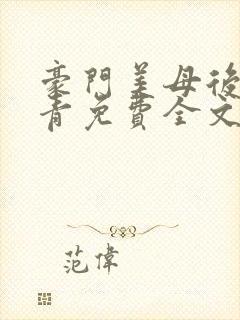 豪門美母後
青免費全文
范偉